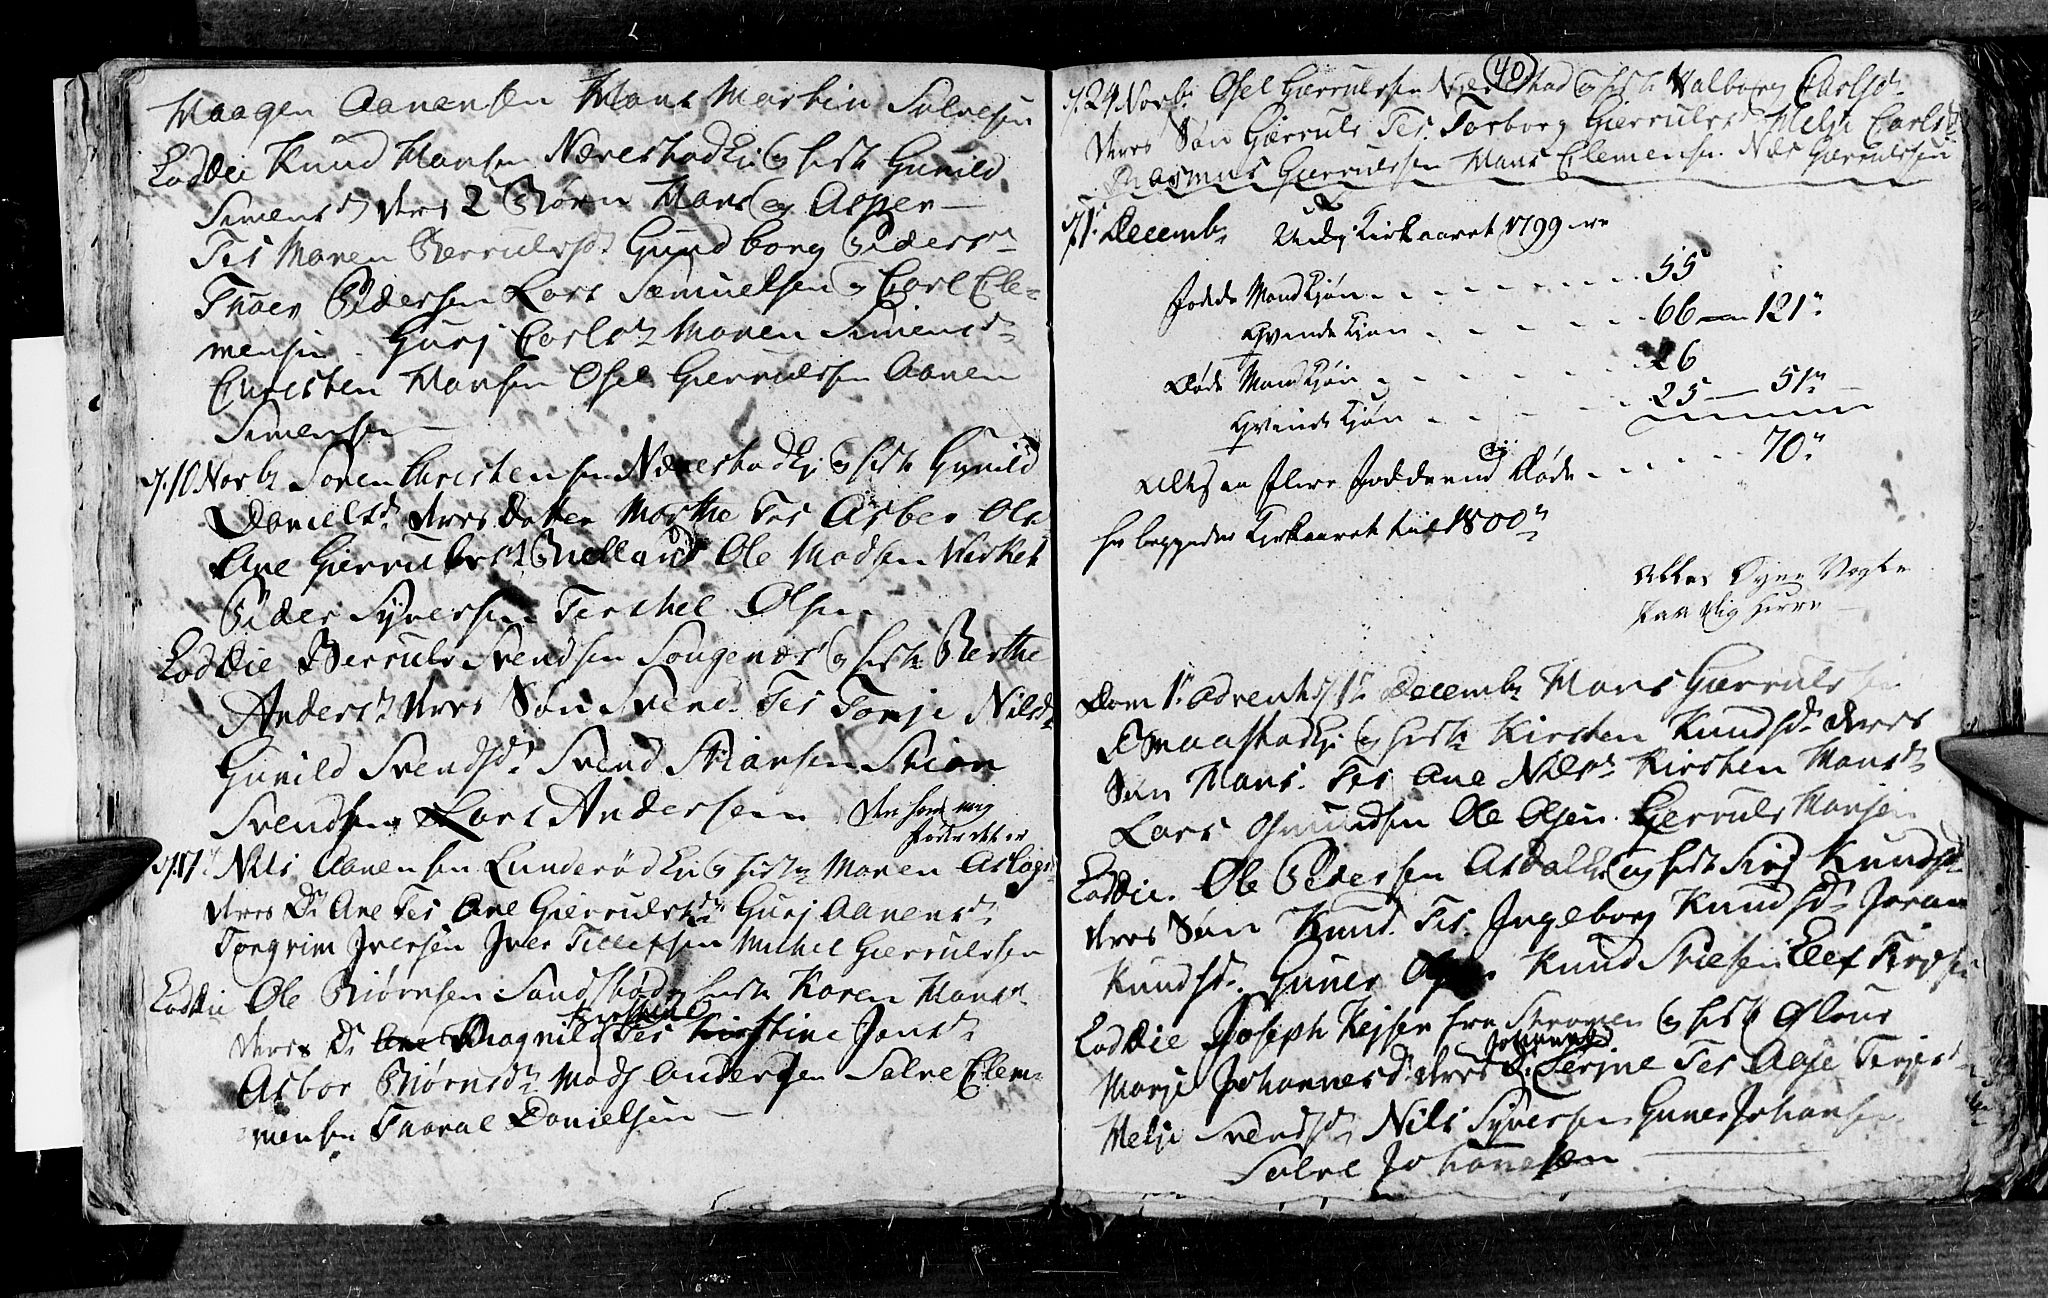 Haagen Aanensen Hans Martin Salvesen
Eoddie Knud Hansen Nærestad Ej og hustr Gunild
Simensd deres 2 Børn Hans og Asper
Tes Maren Berrulvsd Gundborg Pedersd
Thoer Pedersen Lars Samuelsen og Carl Cle=
mensen. Gurj Carlsd Maren Simensd
Christen Hansen Osel Gierrulvsen Aanen
Simensen
d. 10 Novbr Søren Christensen Nærestad Ej og hustr Gunild
Danielsd deres Datter Marthe Tes Asber Ols
Ane Gierrulvsd Ole Madsen
Peder Syversen Terchel Olsen
Eoddie Berrulv Svendsen Songenæs og hustr Berthe
Andersd deres Søn Svend. Tes Tonje Nilsd
Gunild Svendsd Svend Stiansen Stian
Svendsen Lars Andersen
d. 17 Nils Aanensen Lunderød Ej og hustr Maren Aslagsd
deres Dr Ane Tes Ane Gierrulvsd Gurj Aanensd
Torgrim Iversen Iver Tellefsen Michel Gierrulvsen
Eoddie Ole Biørnsen Sandstad og hustr Karen Hansd
deres Dr Ane Magnild Tes Kirstine Jensd
Asbor Biørnsd Mads Andersen Salve Clem=
mensen Taaral Danielsen
40
d. 24 Novbr Osel Gierrulvsen Næs og hustr Valborg Carlsd
deres Søn Gierrulv Tes Torborg Gierrulvsd Helje Carlsd
Rasmus Gierrulvsen Hans Clemensen Næs Gierrulvsen
d. 1 Decembr Udj Kirkaaret 1799 ere
fødde Mandkjøn 55
Qvindekjøn 66 — 121
Døde Mandkjøn 26
Qvindekjøn 25 — 51
Altsaa flere fødde end Døde 70
her begynder Kirkaaret til 1800
Alles Øyne Vogte
paa dig Herre
Dom 1 Advent d 1 Decembr Hans Gierrulvsen
Smaastad Ej og hustr Kirsten Knudsd deres
Søn Hans. Tes Ane Nilsd Kirsten Hansd
Lars Osmundsen Ole Olsen. Gierrulv Hansen
Eoddie. Ole Pedersen Asdal Ej og hustr Sirj Knudsd
deres Søn Knud. Tes. Ingeborg Knudsd Joran
Knudsd. Guner Knud Stiesen Elef Terjesen
Eoddie Joseph Kejsen fra og hustr
Marje Johannesd deres Dr Johanne Serine Tes Aasje Terjesd
Helje Svendsd Nils Syversen Guner Johansen
Salve Johansen